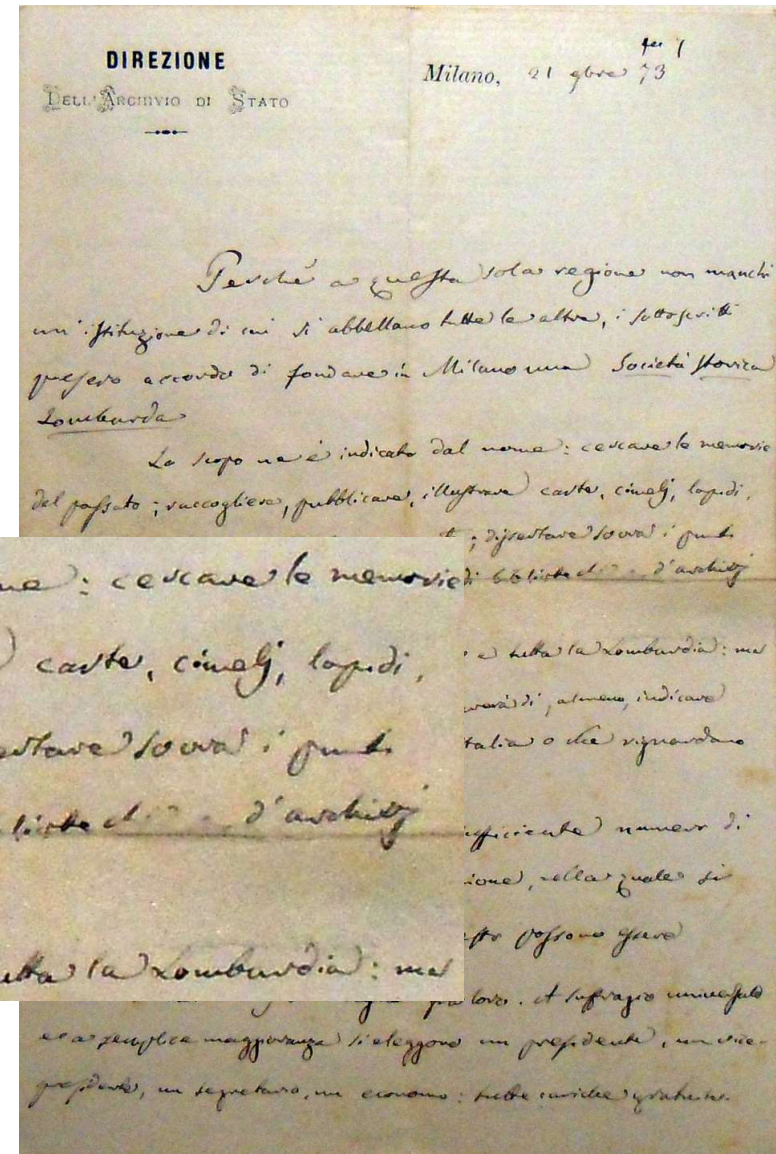 DIREZIONE
DELL'ARCHIVIO DI STATO
Milano, 21 9bre 73
Perché a questa sola regione non manchi
un'istituzione di cui si abbellano tutte le altre, i sottoscritti
presero accordo di fondare in Milano una Società storica
Lombarda
Lo scopo ne è indicato dal nome: cercare le memorie
del passato; raccogliere, pubblicare, illustrare carte, cimelj, lapidi,
; dissertare sovra i punti
d'archivj
a tutta la Lombardia: ma
di, almeno, indicare
Italia o che riguardano
sufficiente numero di
ione, nella quale si
possono essere
loro. A suffragio universale
e a semplice maggioranza si eleggono un presidente, un vice-
presidente, un segretario, un economo: tutte cariche gratuite.
me: cercare le memorie
carte, cimelj, lapidi,
sertare sovra i punti
d'archivj
tutta la Lombardia: ma